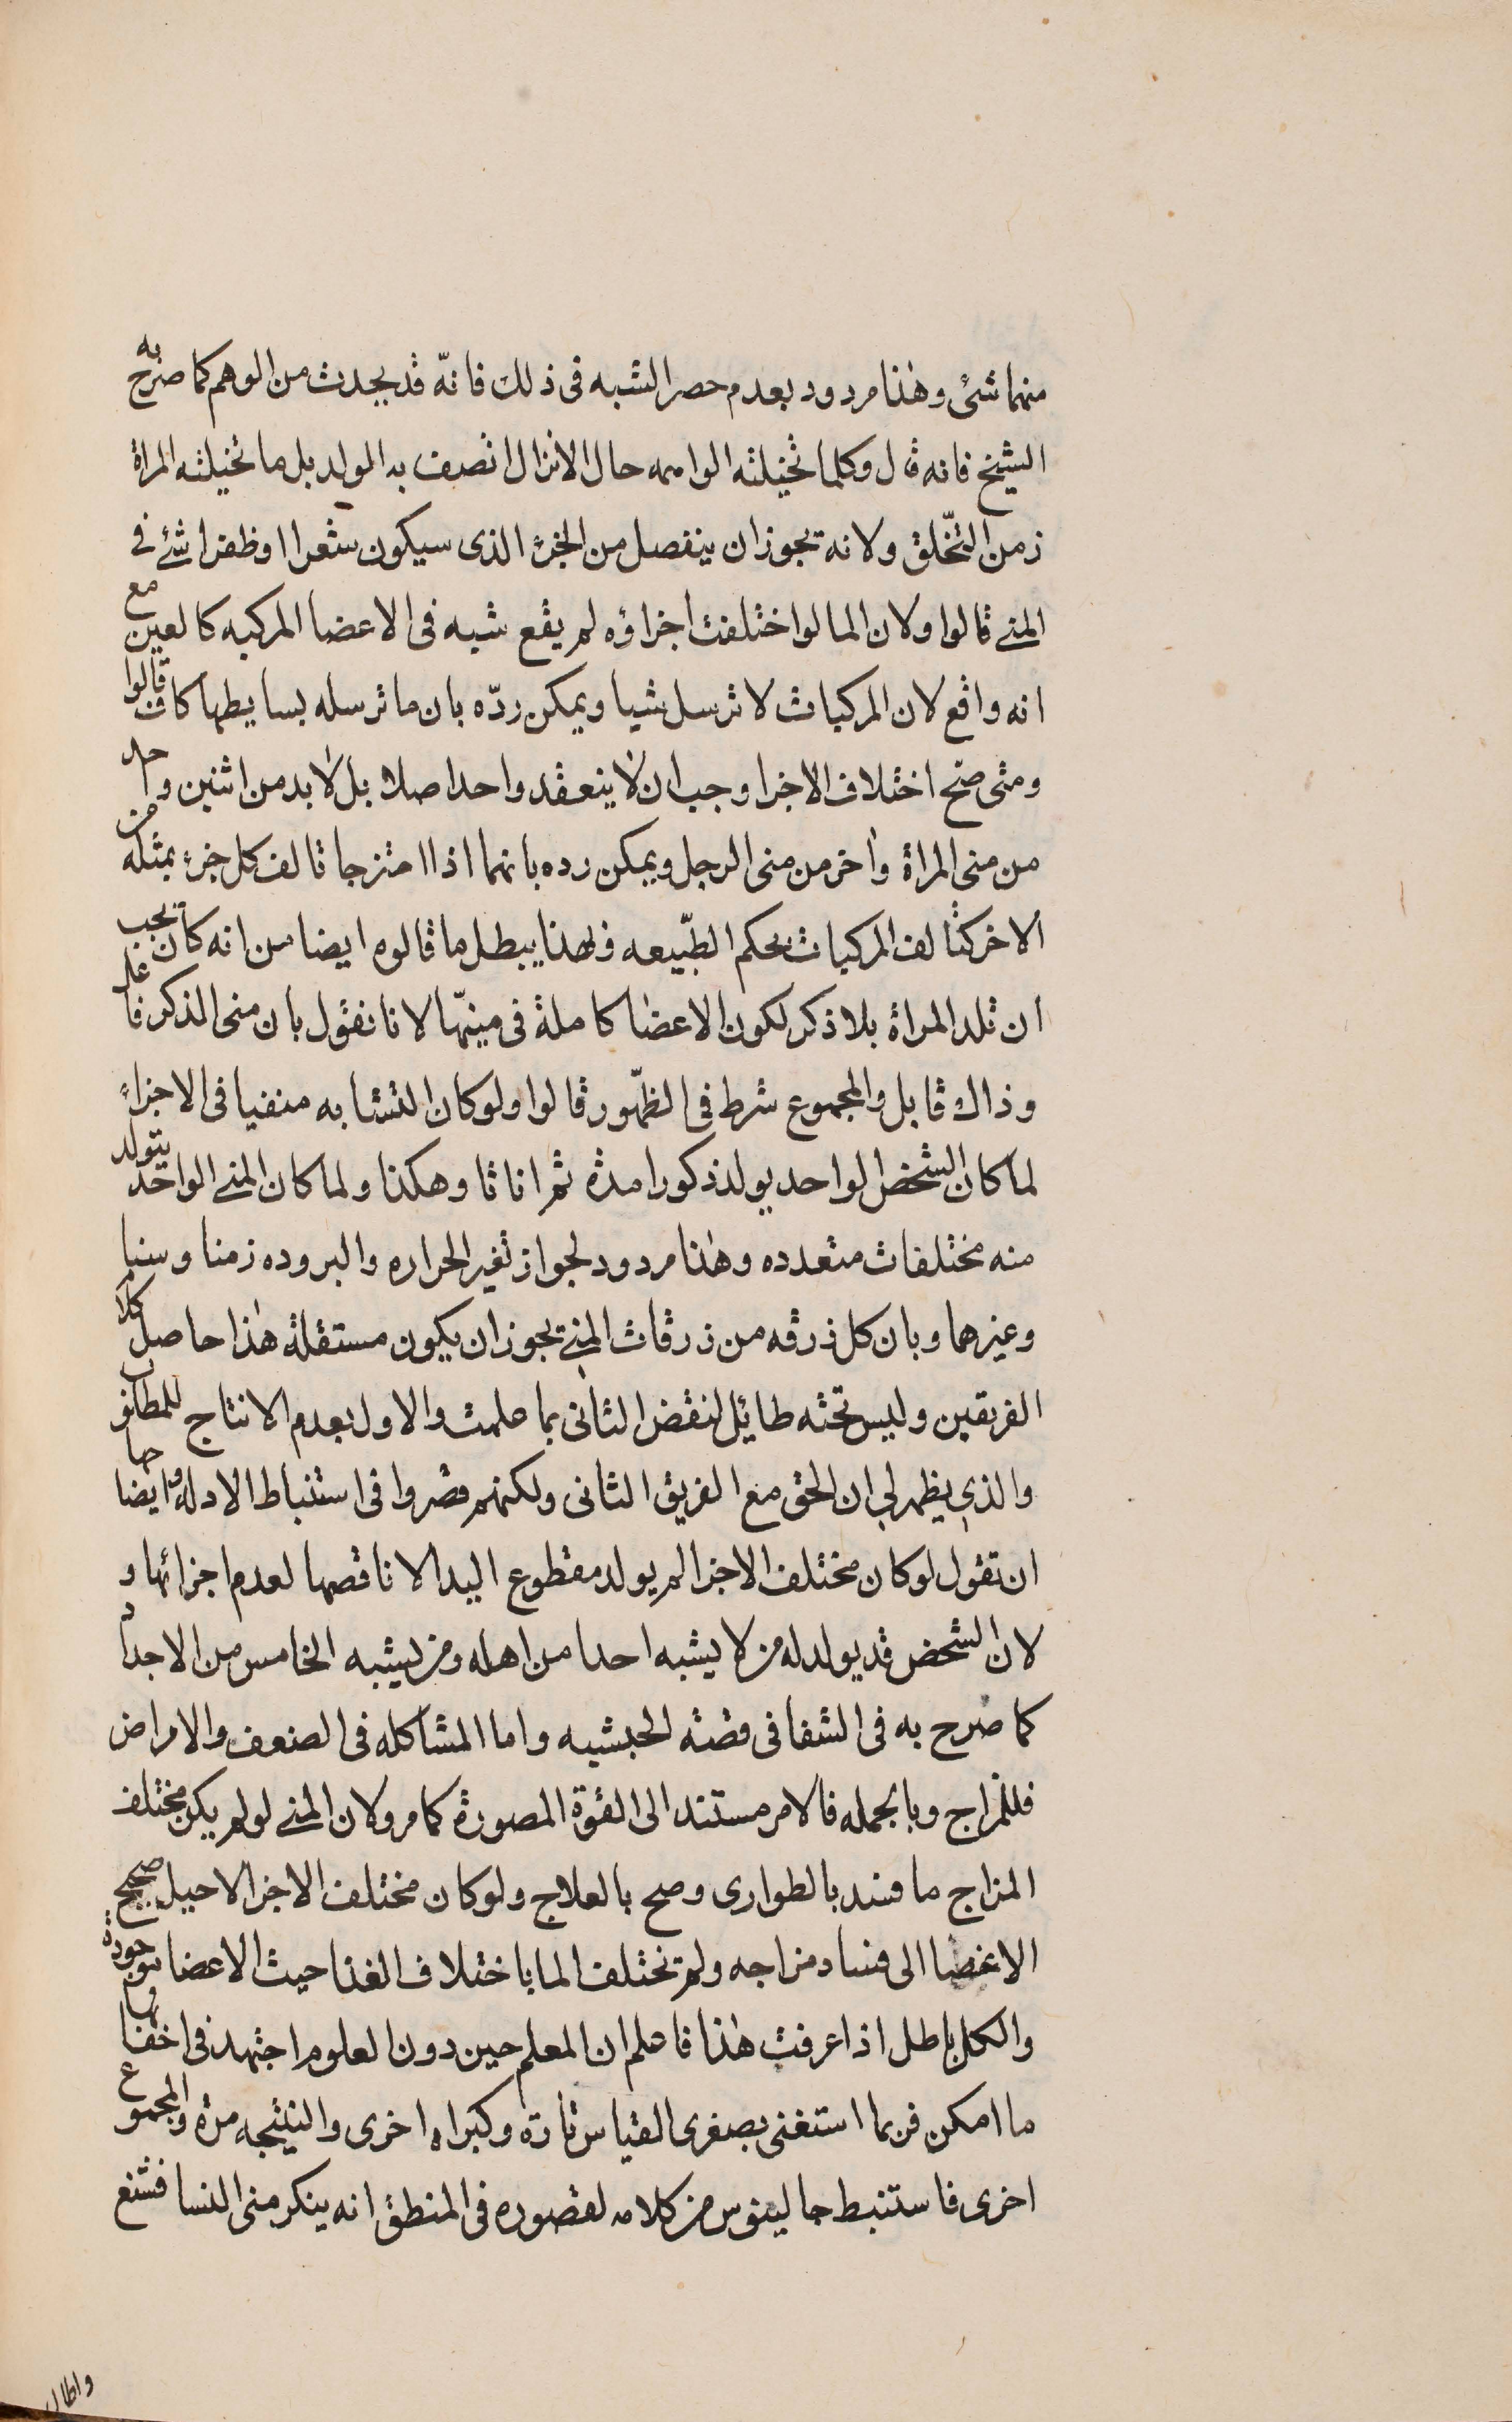 منهما شئ وهذا مردود بعدم حصر الشبه فى ذلك فانّه قد يحدث من الوهم كما صرح به
الشيخ فانه قال وكلما تخيلته الواهمه حال الانزال اتصف به المولد بل ما تخيلته المراة
زمن التخّلق ولانه يجوز ان ينفصل من الجزء الذى سيكون شعرا او ظفرا شئ فى
المنى قالوا ولان الما لو اختلفت اجزاؤه لم يقع شبه فى الاعضا المركبه كالعين مع
انه واقع لان المركبات لا ترسل شيا ويمكن ردّه بان ما ترسله بسايطها كاف قالوا
ومتى صح اختلاف الاجزا وجب ان لا ينعقد واحد اصلا بل لا بد من اثنين واحد
من منى المراة واخر من منى الرجل ويمكن رده بانهما اذا امتزجا تالف كل جزء بمثله من
الاخر كتالف المركبات بحكم الطبّيعه وبهذا يبطل ما قالوه ايضا من انه كان يجب
ان تلد المراة بلا ذكر لكون الاعضا كاملة فى منيّها لانا نقول بان منى الذكر فاعل
وذاك قابل والمجموع شرط فى الظهّور قالوا ولو كان التشابه منفيا فى الاجزاء
لما كان الشخص الواحد يولد ذكورا مدة ثم اناثا وهكذا ولما كان المنى الواحد يتولد
منه مختلفات متعدده وهذا مردود لجواز تغير الحراره والبروده زمنا وسنا
وغيرهما وبان كل زرقه من زرقات المنى يجوز ان يكون مستقلة هذا حاصل كلام
الفريقين وليس تحته طائل لنقض الثانى بما علمت والاول بعدم الانتاج للمطلوب
والذى يظهر لى ان الحق مع الفريق الثانى ولكنهم قصروا فى استنباط الادله وايضاحها
ان تقول لو كان مختلف الاجزا لم يولد مقطوع اليد الا ناقصها لعدم اجزائها و
لان الشخص قد يولد له من لا يشبه احدا من اهله ومن يشبه الخامس من الاجداد
كما صرح به فى الشفا فى قصة الحبشيه واما المشاكله فى الضعف والامراض
فللمزاج وبالجمله فالامر مستند الى القوة المصورة كما مر ولان المنى لو لم يكن مختلف
المزاج ما فسد بالطوارى وصح بالعلاج ولو كان مختلف الاجزا لاحيل صحيح
الاعضا الى فساد مزاجه ولم تختلف الما باختلاف الغذا حيث الاعضا موجودة
والكل باطل اذا عرفت هذا فاعلم ان المعلم حين دون العلوم اجتهد فى اخفائها
ما امكن فربما استغنى بصغرى القياس تارة وكبراه اخرى والنتيجه مرة والمجموع
اخرى فاستنبط جالينوس من كلامه لقصوره فى المنطق انه ينكر منى النسا فشنع
واطال